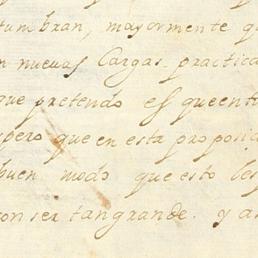 tumbran, mayormente q
n nuevas Cargas practica
que pretendo es queentr
spero que en esta proposic
buen modo que esto les
con ser tangrande. y a